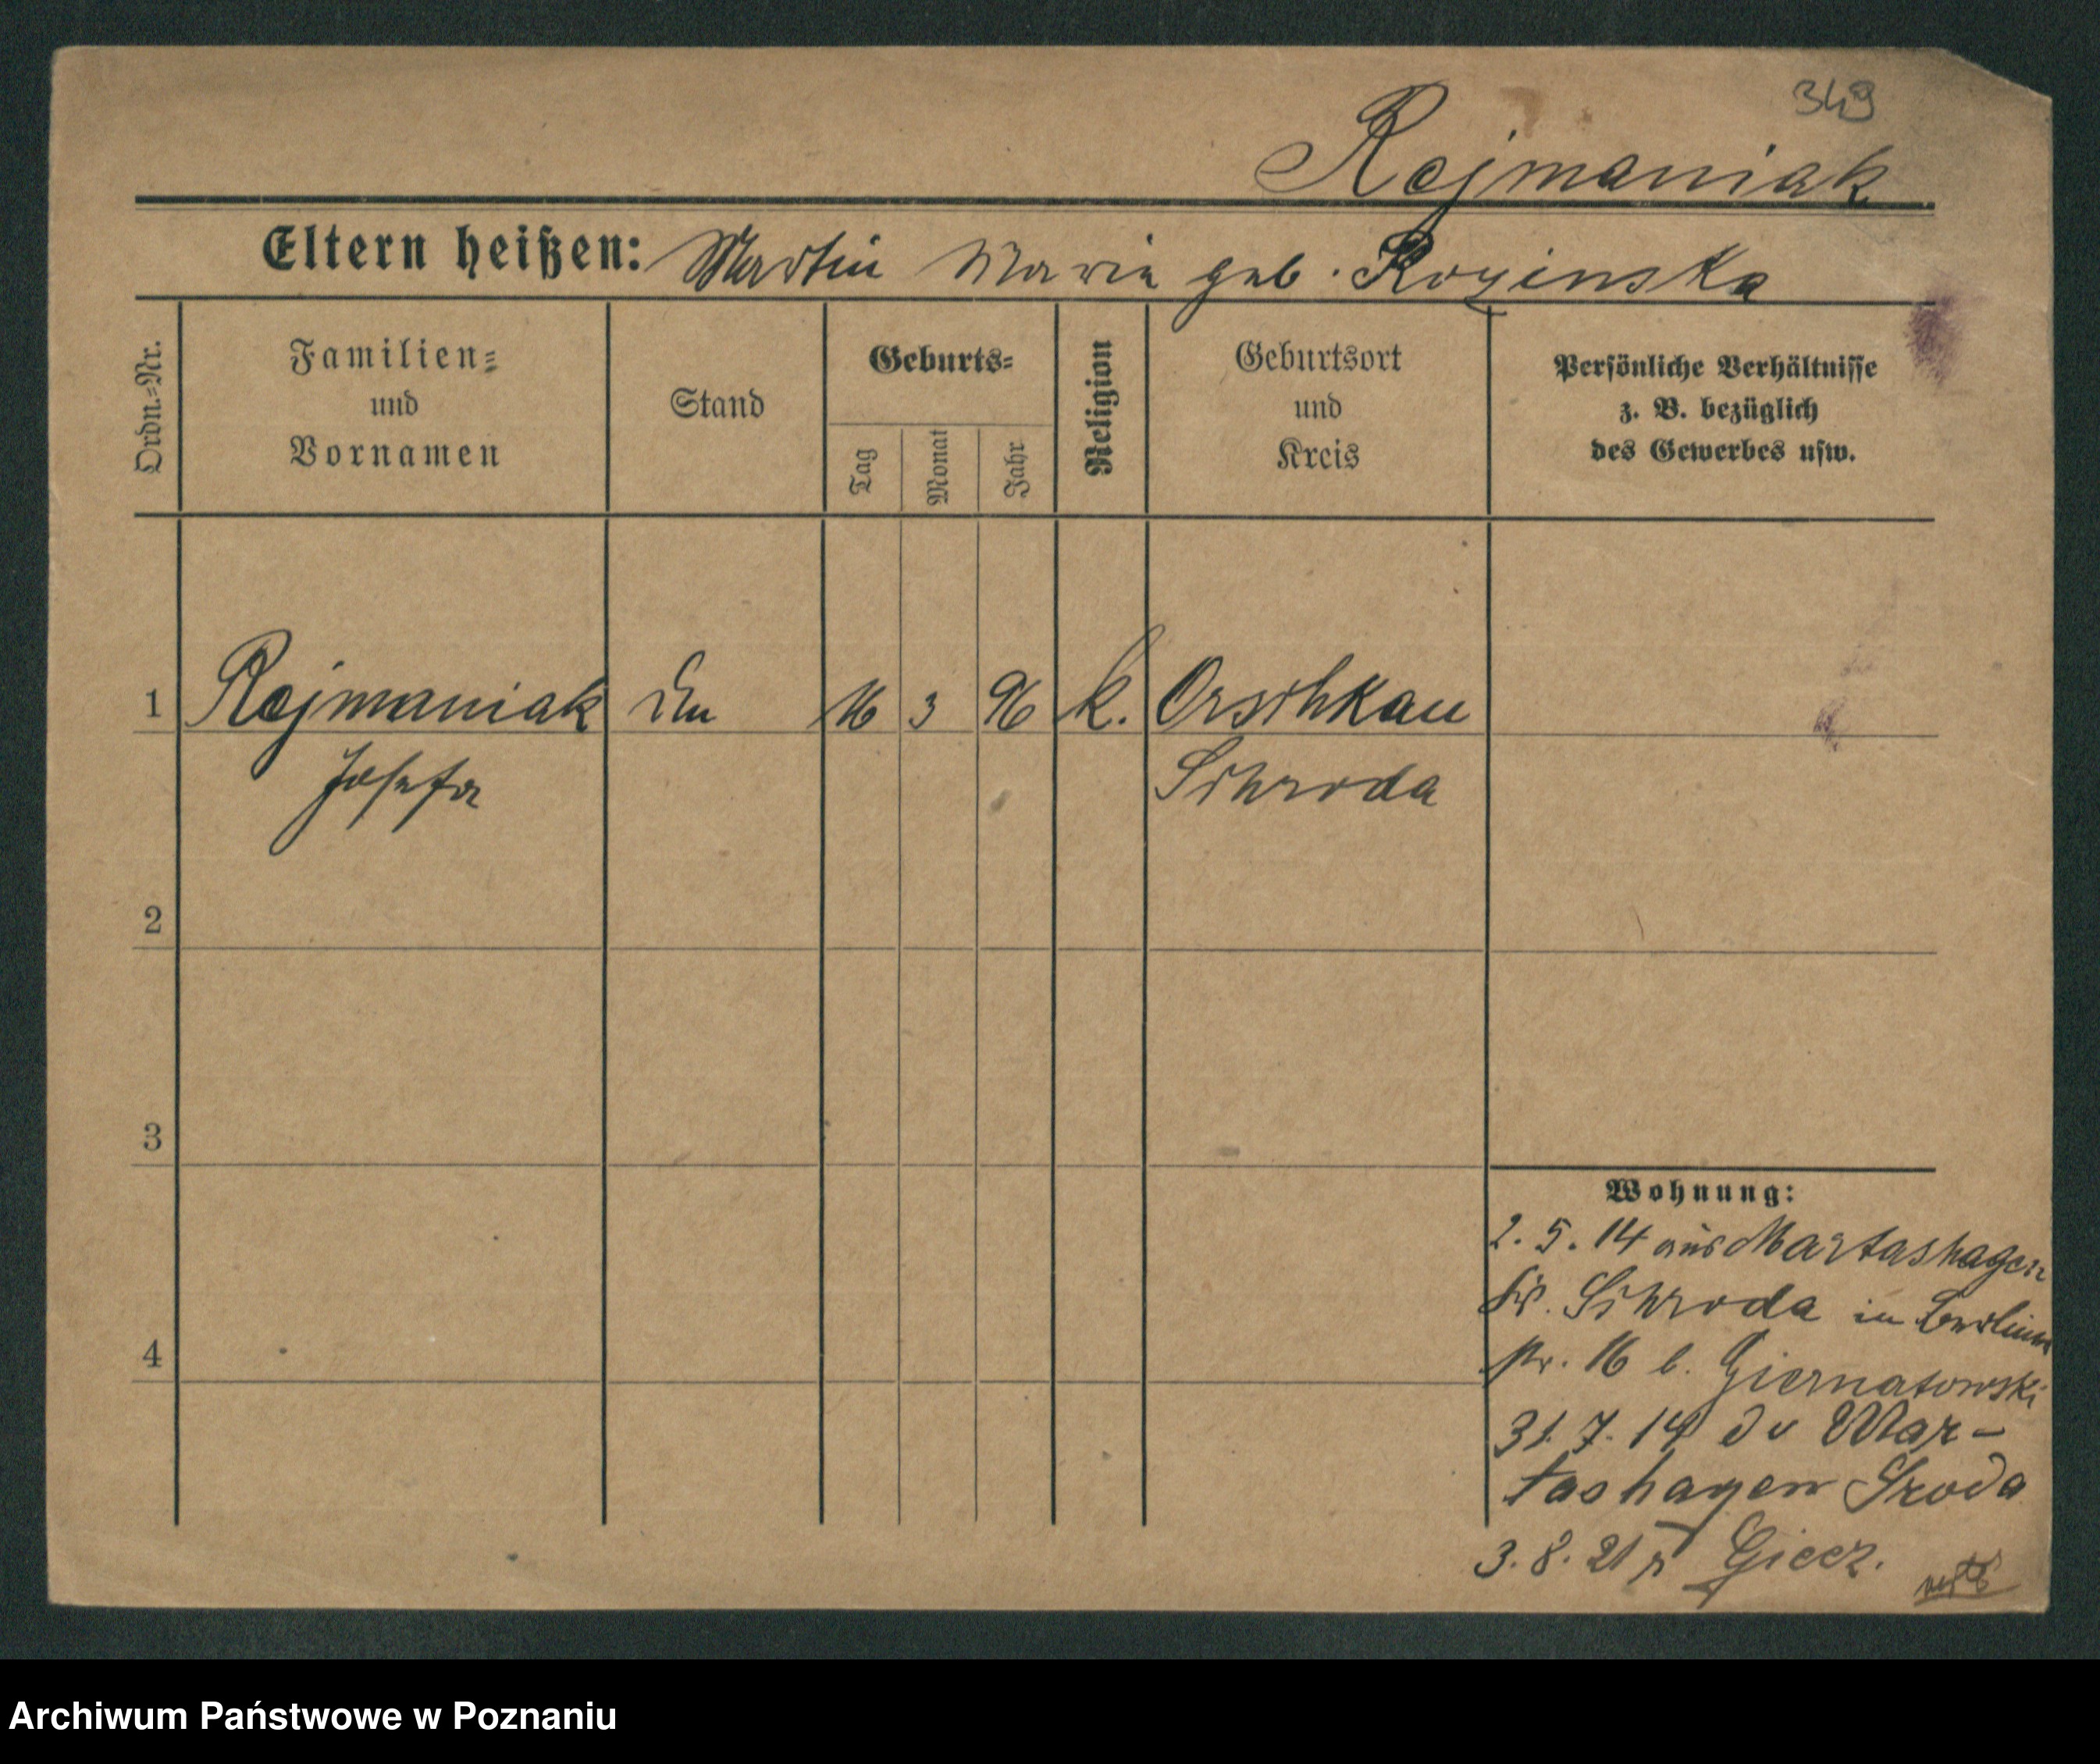 349
Rejmaniak
Eltern heißen: Martin Maria geb. Rozinska
Ordn.=Nr.
Familien=
und
Vornamen
Stand
Geburts=
Tag
Monat
Jahr
Religion
Geburtsort
und
Kreis
Persönliche Verhältnisse
z. B. bezüglich
des Gewerbes usw.
1 Rejmaniak 16 3 96 k. Orschkau
Josefa Schroda
2
3
4
Wohnung:
2. 5. 14 aus Martashagen
Kr. Schroda in
16 b. Giernatowski
31. 7. 14 Mar-
tashagen Sroda
3. 8. 21 Giecz.
Archiwum Państwowe w Poznaniu